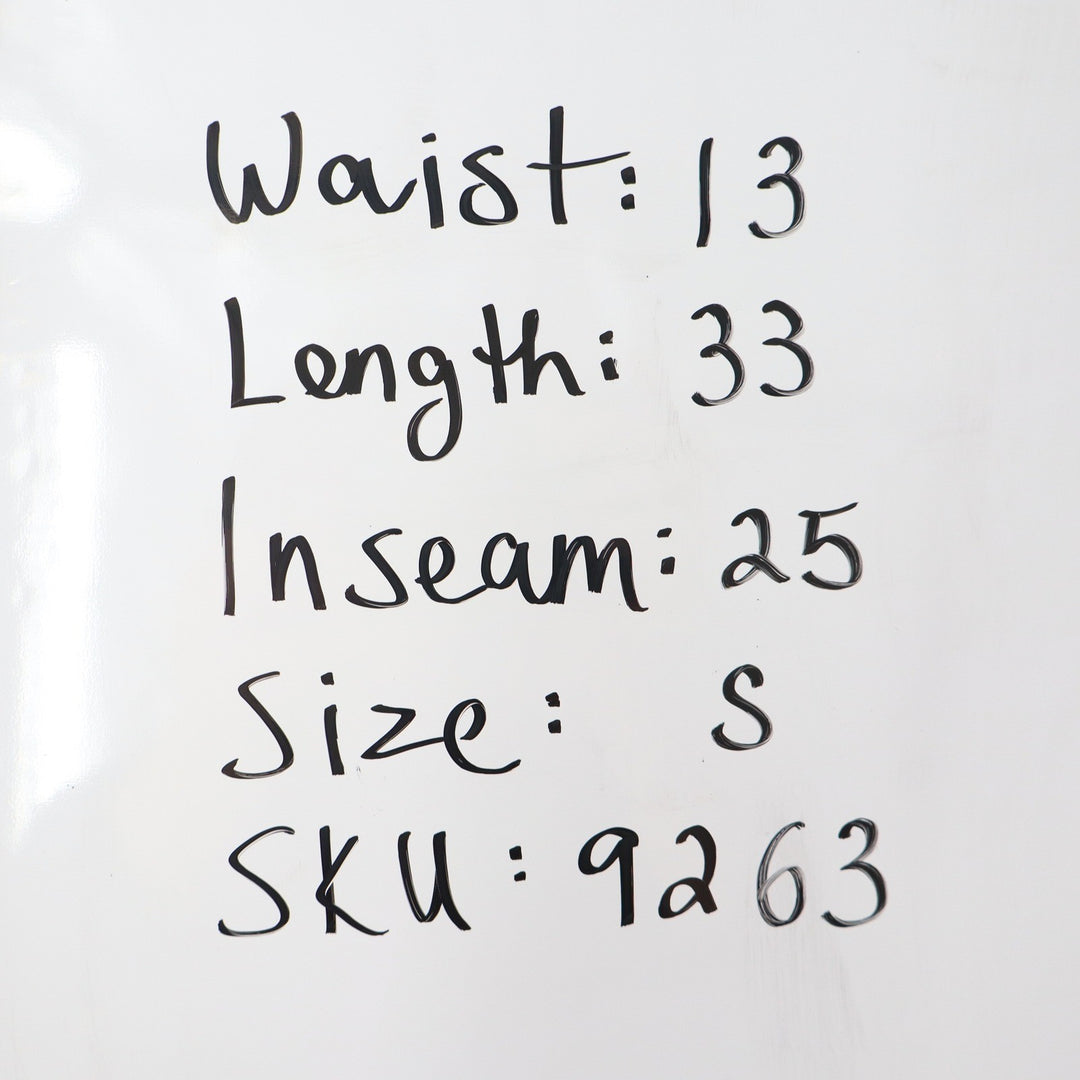 Waist: 13
Length: 33
Inseam: 25
Size: S
SKU: 9263